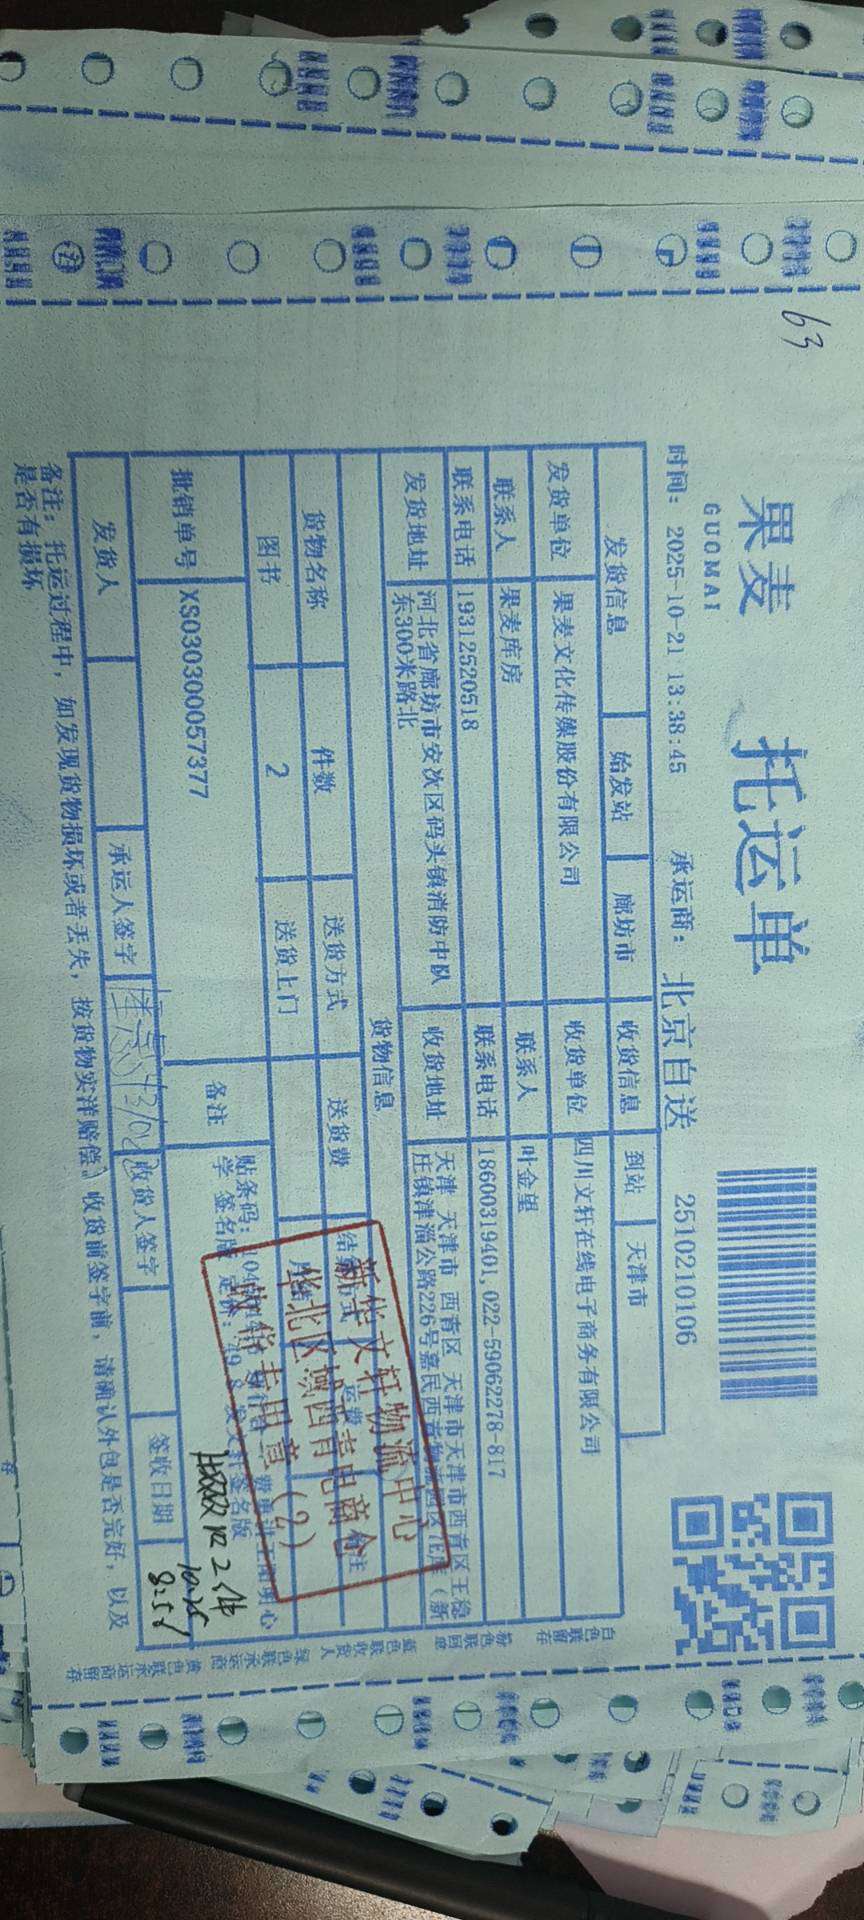 63
果麦 托运单
GUOMAI
时间: 2025-10-21 13:38:45 承运商: 北京自送 2510210106
发货信息 始发站 廊坊市 收货信息 到站 天津市
发货单位 果麦文化传媒股份有限公司 收货单位 四川文轩在线电子商务有限公司
联系人 果麦库房 联系人 叶金望
联系电话 19312520518 联系电话 18600319401,022-59062278-817
发货地址 河北省廊坊市安次区码头镇消防中队 收货地址 天津 天津市 西青区 天津市天津市西青区王稳
东300米路北 庄镇津淄公路226号嘉民西青物流园
货物信息
货物名称 件数 送货方式 送货费 结算方式 运费 备注
图书 2 送货上门
批销单号 XS030300057377 备注 贴条码:
学 签名版 定价:
发货人 承运人签字 收货人签字 签收日期
备注: 托运过程中, 如发现货物损坏或者丢失, 按货物实洋赔偿。收货前签字前, 请确认外包是否完好, 以及
是否有损坏
新华文轩物流中心
华北区域西青电商仓
收货专用章(2)
收2件
10.25
8:25
白色联留存
粉色联回单
蓝色联收货人
绿色联承运商
黄色联承运商留存